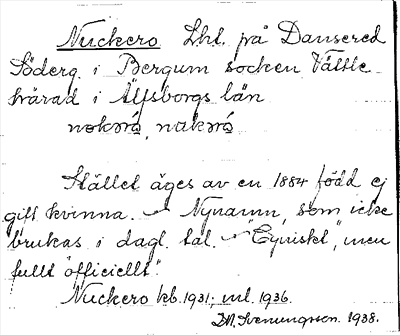 Nuckero Lht. på Dansered
Söderg. i Bergum socken Vättle
härad i Älfsborgs län
Stället äges av en 1884 född ej
gift kvinna. — Nynamn, som icke
brukas i dagl. tal. — "Cyniskt", men
fullt "officiellt".
Nuckero kb. 1931; ml. 1936.
D.A. Svenungsson. 1938.